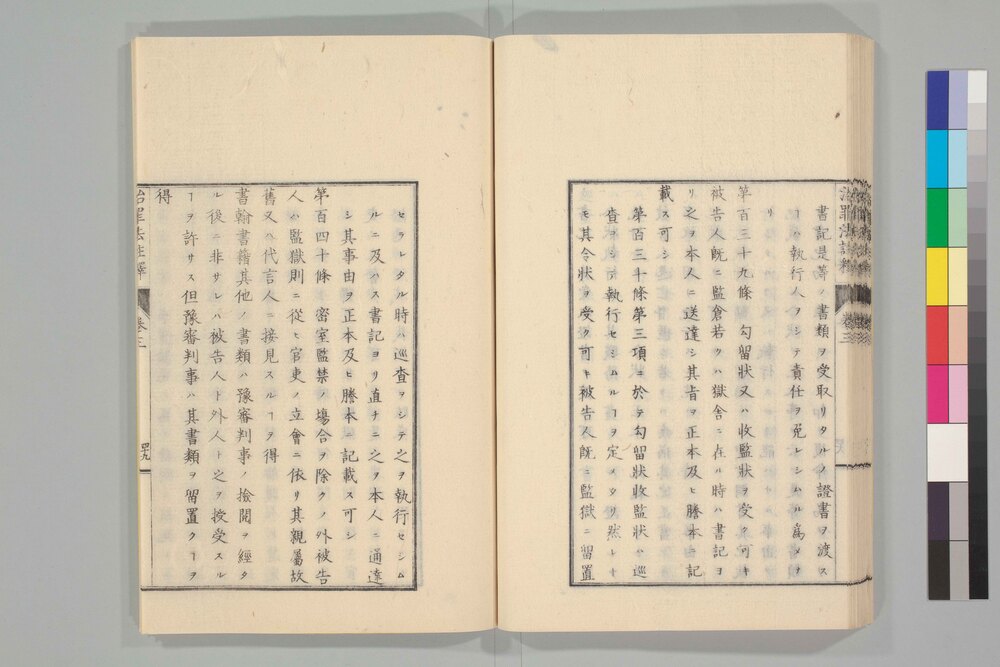 書記是等ノ書類ヲ受取リタルノ證書ヲ渡ス
リ
ーハ執行人ヲシテ責任ヲ免レシムル爲メナ
第百三十九條 勾留狀又ハ收監狀ヲ受ク可キ
被告人既ニ監倉若クハ獄舍ニ在ル時ハ書記ヨ
リ之ヲ本人ニ送達シ其旨ヲ正本及ヒ謄本ニ記
載ス可シ
第百三十條第三項ニ於テ勾留狀收監狀ハ巡
査ヲシテ執行セシムルヿヲ定メタリ然レヒ
モ其令狀ヲ受ク可キ被告人既ニ監獄ニ留置
治罪法註釋 卷三
セラレタル時ハ巡査ヲシテ之ヲ執行セシム
ルニ及ハス書記ヨリ直チニ之ヲ本人ニ通達
シ其事由ヲ正本及ヒ謄本ニ記載ス可シ
第百四十條 密室監禁ノ塲合ヲ除クノ外被告
人ハ監獄則ニ從ヒ官吏ノ立會ニ依リ其親屬故
舊又ハ代言人ニ接見スルヿヲ得
書翰書籍其他ノ書類ハ豫審判事ノ撿閱ヲ經タ
ル後ニ非サレハ被告人ト外人ト之ヲ授受スル
ヿヲ許サス但豫審判事ハ其書類ヲ留置クヿヲ
得
治罪法註釋 卷三 四十九